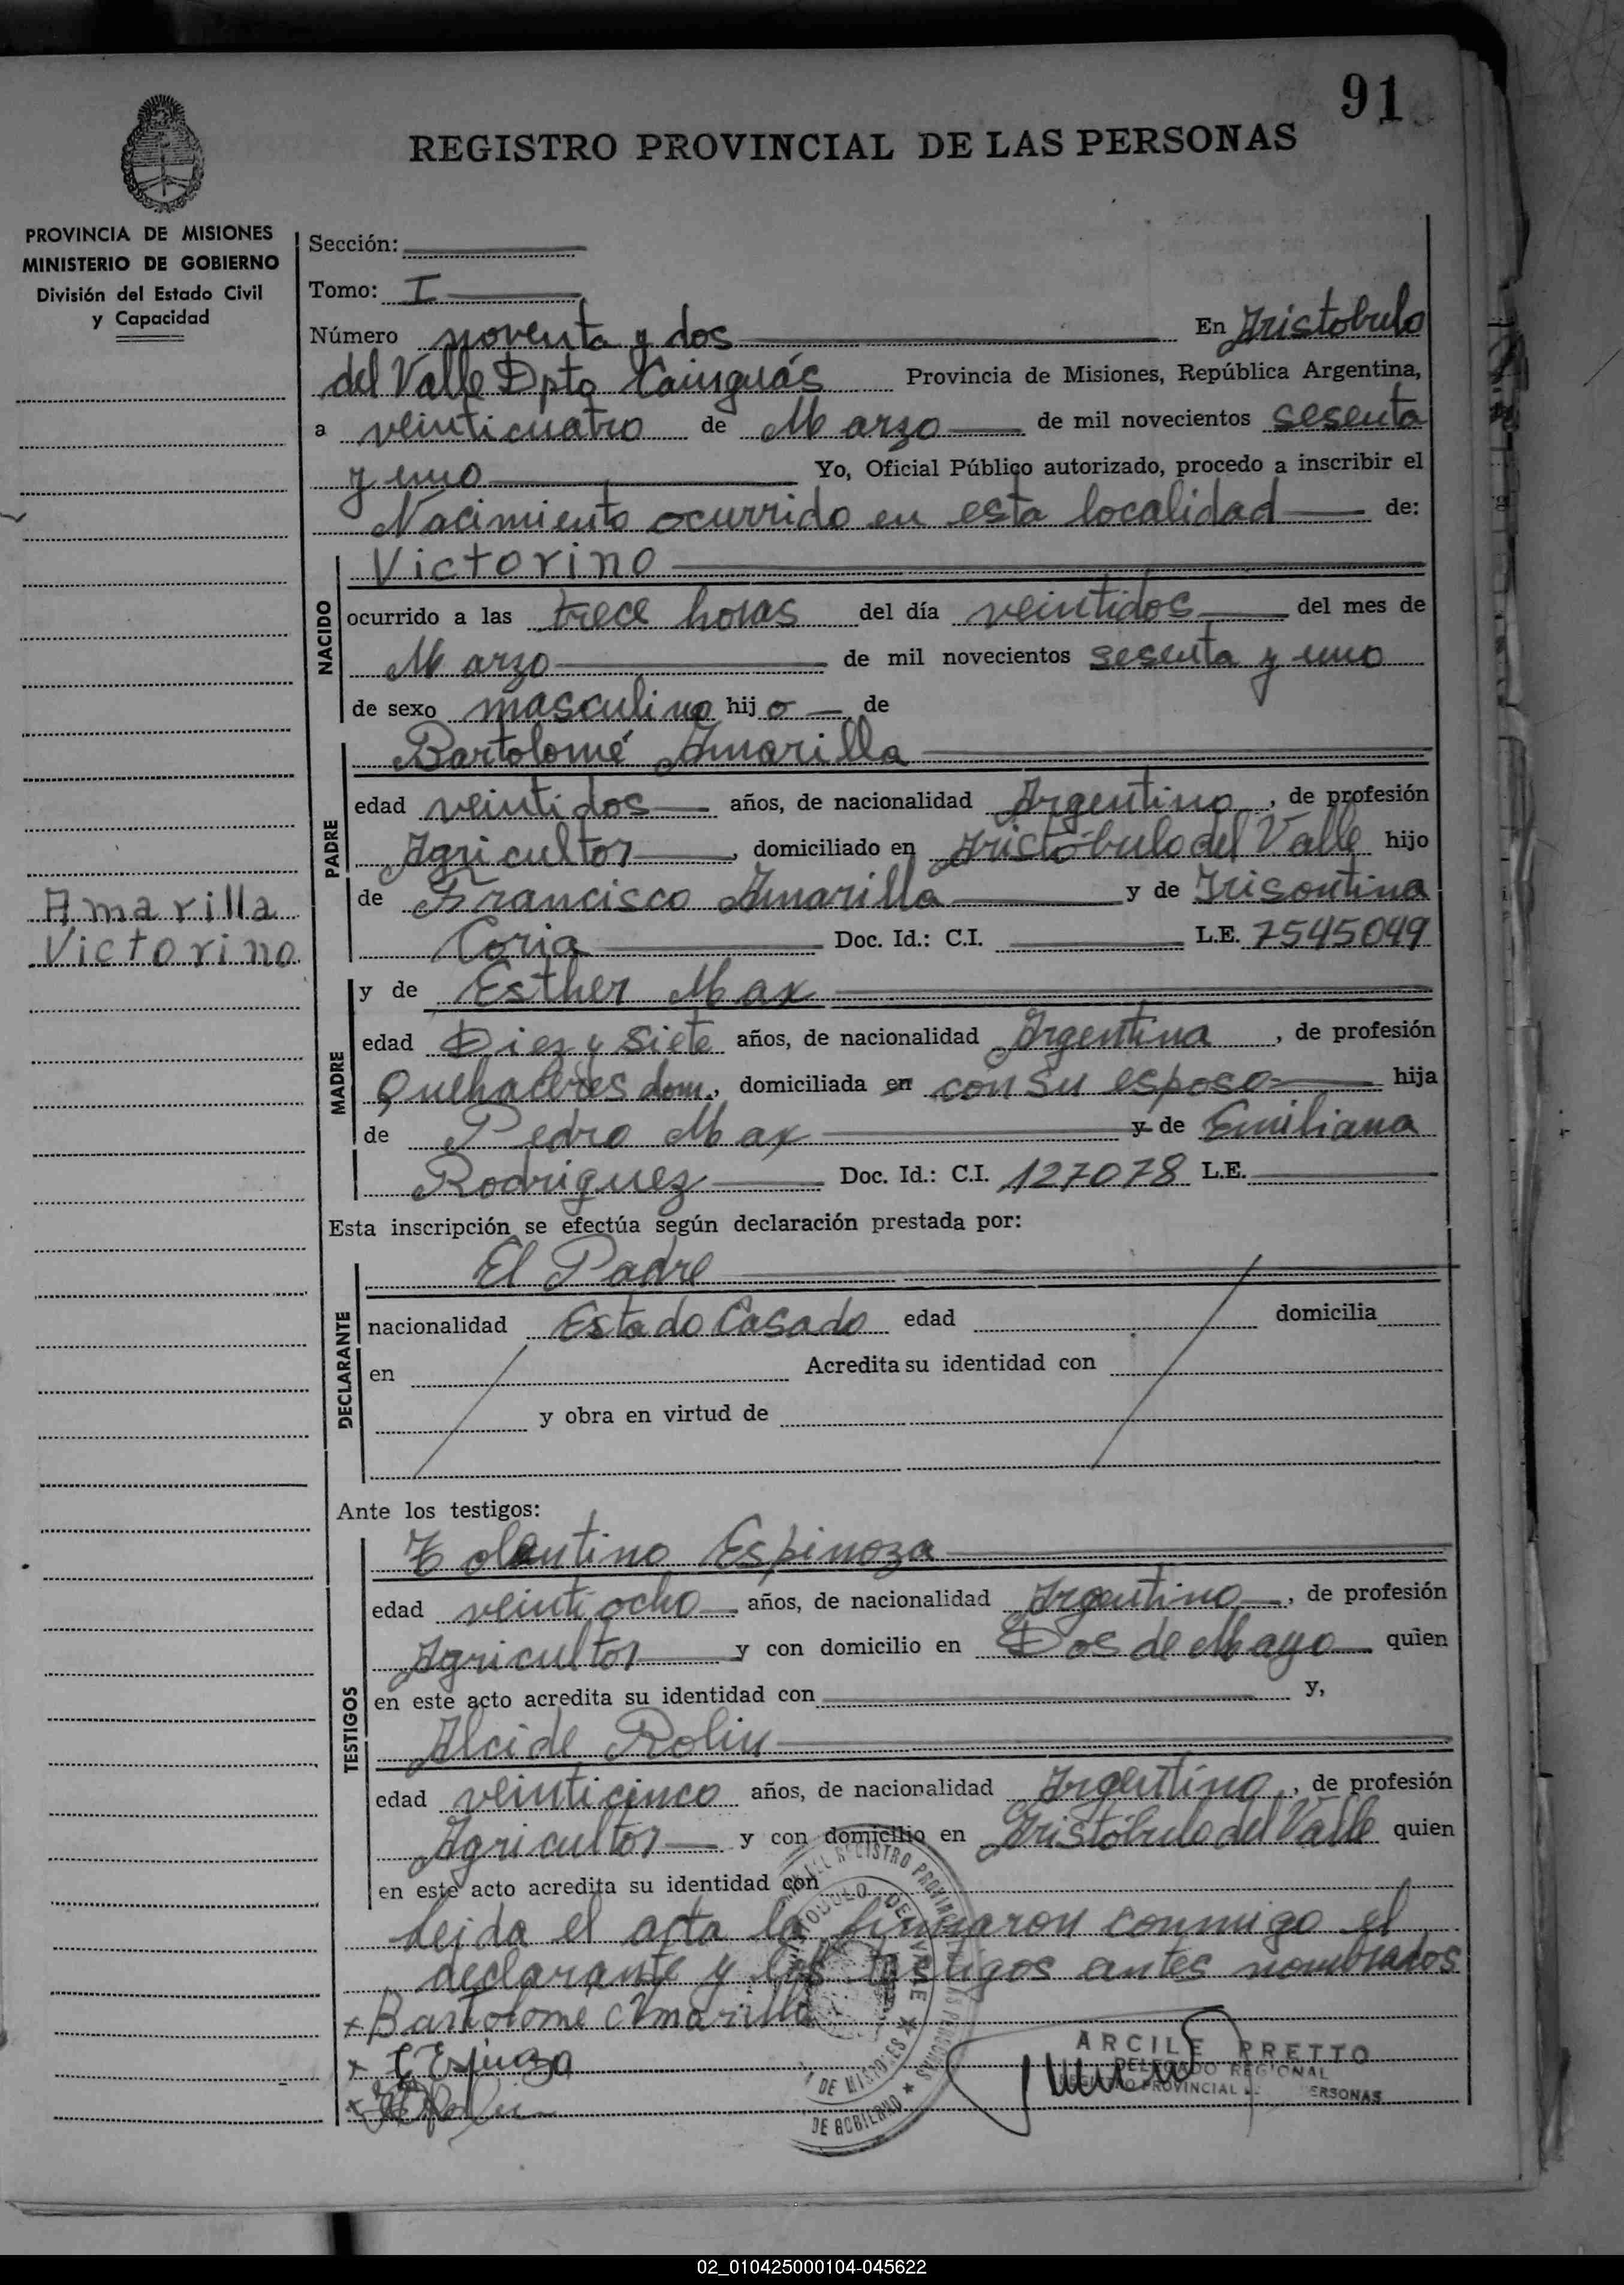 91
REGISTRO PROVINCIAL DE LAS PERSONAS
PROVINCIA DE MISIONES
MINISTERIO DE GOBIERNO
División del Estado Civil
y Capacidad
Sección:
Tomo: I
Número noventa y dos En Aristobulo
del Valle Dpto Cainguás Provincia de Misiones, República Argentina,
a veinticuatro de Marzo de mil novecientos sesenta
y uno Yo, Oficial Público autorizado, procedo a inscribir el
Nacimiento ocurrido en esta localidad de:
NACIDO
Victorino
ocurrido a las trece horas del día veintidos del mes de
Marzo de mil novecientos sesenta y uno
de sexo masculino hijo de
PADRE
Bartolomé Amarilla
edad veintidos años, de nacionalidad Argentino, de profesión
Agricultor, domiciliado en Aristóbulo del Valle hijo
de Francisco Amarilla y de Irisontina
Coria Doc. Id.: C.I. L.E. 7545049
Amarilla
Victorino
MADRE
y de Esther Max
edad Diez y siete años, de nacionalidad Argentina, de profesión
Quehaceres dom., domiciliada en con su esposo hija
de Pedro Max y de Emiliana
Rodriguez Doc. Id.: C.I. 127078 L.E.
Esta inscripción se efectúa según declaración prestada por:
DECLARANTE
El Padre
nacionalidad Estado Casado edad domicilia
en Acredita su identidad con
y obra en virtud de
Ante los testigos:
TESTIGOS
Tolentino Espinoza
edad veinti ocho años, de nacionalidad Argentino, de profesión
Agricultor y con domicilio en Dos de Mayo quien
en este acto acredita su identidad con y,
Alcide Rolin
edad veinticinco años, de nacionalidad Argentino, de profesión
Agricultor y con domicilio en Aristóbulo del Valle quien
en este acto acredita su identidad con
Leida el acta la firmaron conmigo el
declarante y los testigos antes nombrados
x Bartolome Amarilla
x T Espinoza
x Rolin
ARCILE PRETTO
DELEGADO REGIONAL
REGISTRO PROVINCIAL PERSONAS
02_010425000104-045622